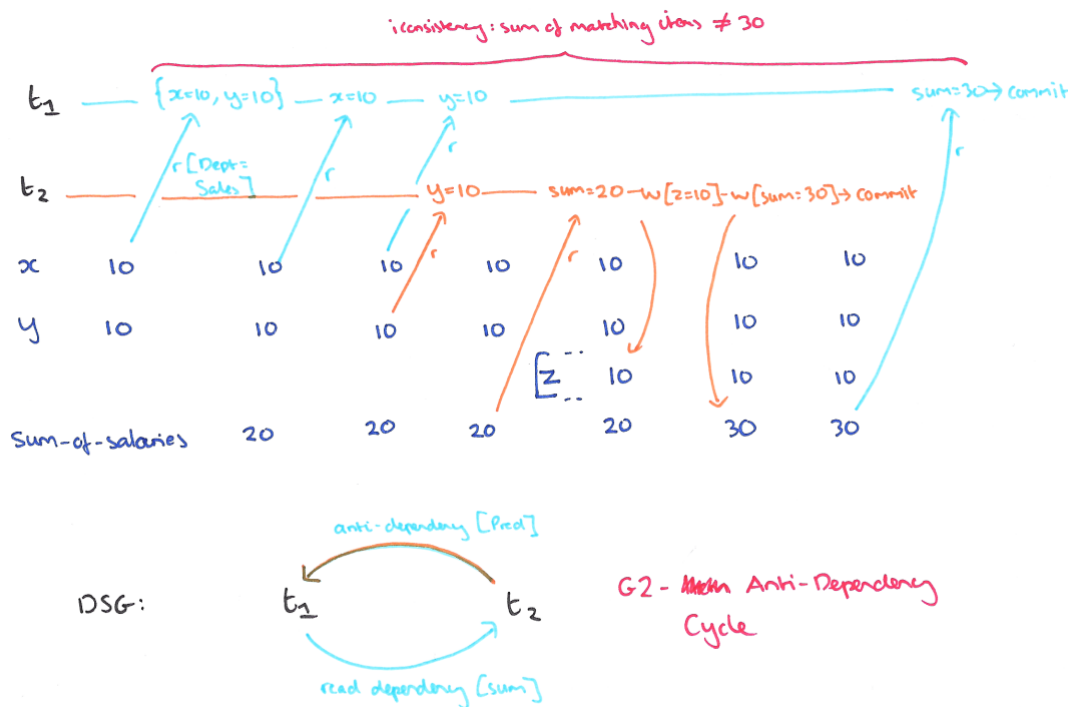 iconsistency: sum of matching items ≠ 30
t1 {x=10, y=10} x=10 y=10 sum=30 → commit
r[Dept=
Sales]
r
r
r
t2 y=10 sum=20 w[z=10] - w[sum=30] → commit
r
r
x 10 10 10 10 10 10 10
y 10 10 10 10 10 10 10
z 10 10 10
sum-of-salaries 20 20 20 20 30 30
anti-dependency [Pred]
DSG: t1 t2
G2 - Anti-Dependency
Cycle
read dependency [sum]